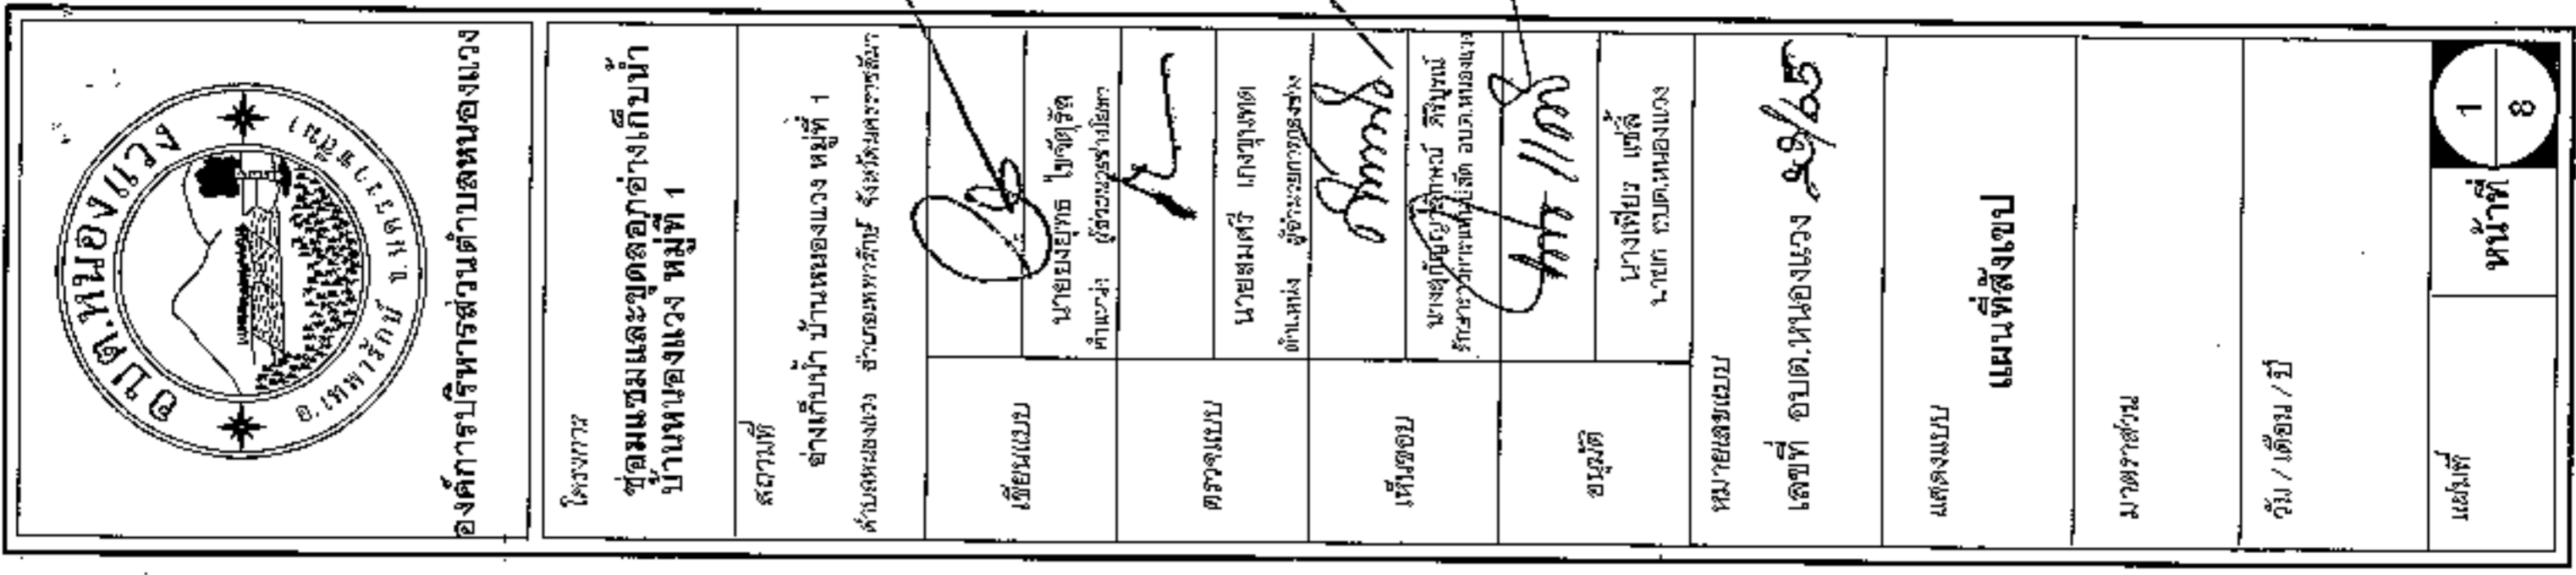 อบต.หนองแวง
อ.เทพารักษ์ จ.นครราชสีมา
องค์การบริหารส่วนตำบลหนองแวง
โครงการ
ซ่อมแซมและขุดลอกอ่างเก็บน้ำ
บ้านหนองแวง หมู่ที่ 1
สถานที่
อ่างเก็บน้ำ บ้านหนองแวง หมู่ที่ 1
ตำบลหนองแวง อำเภอเทพารักษ์ จังหวัดนครราชสีมา
เขียนแบบ
นายยงยุทธ
ตำแหน่ง ผู้ช่วยนายช่างโยธา
ตรวจแบบ
นายสมศรี เกงขุนทด
ตำแหน่ง ผู้อำนวยการกองช่าง
เห็นชอบ
อบต.หนองแวง
อนุมัติ
นางเพียร แซ่ลี้
นายก อบต.หนองแวง
หมายเลขแบบ
เลขที่ อบต.หนองแวง
แสดงแบบ
แผนที่สังเขป
มาตราส่วน
วัน / เดือน / ปี
แผ่นที่
หน้าที่
1
8